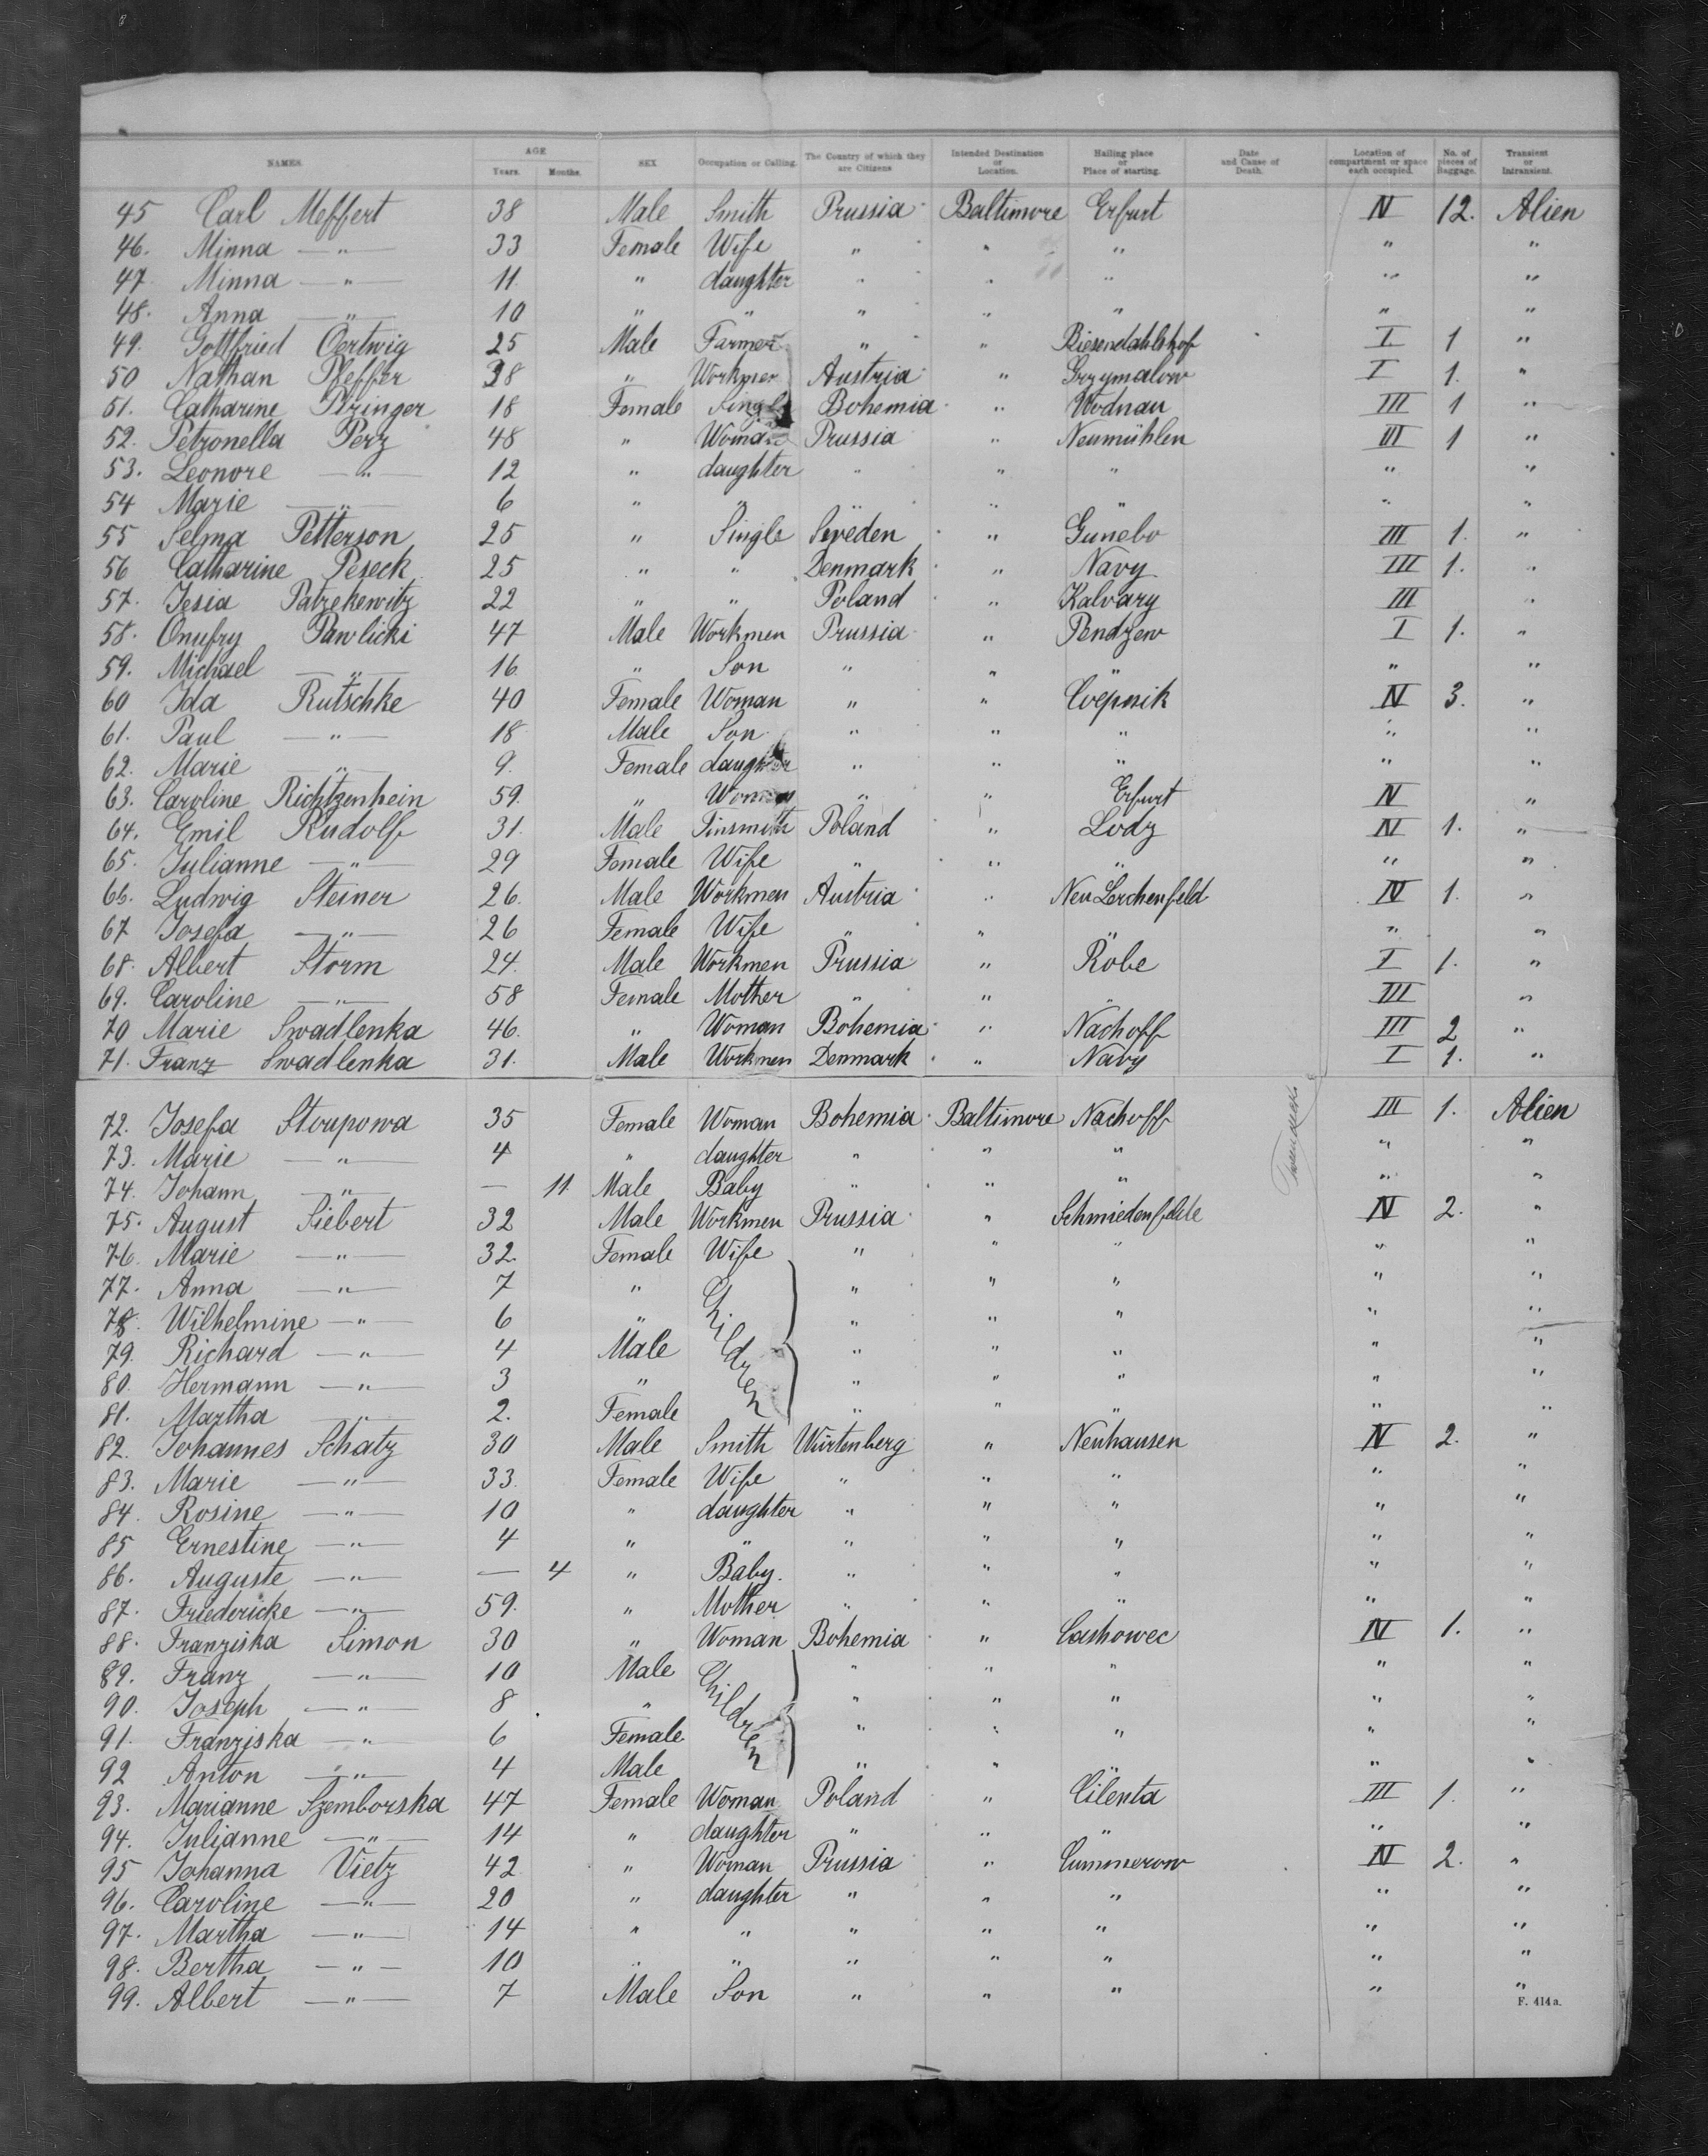 NAMES. AGE Years. Months. SEX Occupation or Calling. The Country of which they are Citizens Intended Destination or Location. Hailing place or Place of starting. Date and Cause of Death. Location of compartment or space each occupied. No. of pieces of Baggage. Transient or Intransient.
45 Carl Meffert 38 Male Smith Prussia Baltimore Erfurt IV 12. Alien
46. Minna —"— 33 Female Wife " " " " "
47. Minna —"— 11 " daughter " " " " "
48. Anna —"— 10 " " " " " " "
49. Gottfried Oertwig 25 Male Farmer " " Riesendahlshof I 1 "
50 Nathan Pfeffer 38 " Workmen Austria " Grzymalow I 1. "
51. Catharine Pizinger 18 Female Single Bohemia " Wodnau III 1 "
52. Petronella Perz 48 " Woman Prussia " Neumühlen III 1 "
53. Leonore —"— 12 " daughter " " " " "
54 Marie —"— 6 " " " " " " "
55 Selma Petterson 25 " Single Sweden " Gunebo III 1. "
56 Catharine Peseck 25 " " Denmark " Navy III 1. "
57. Jesia Patzekewitz 22 " " Poland " Kalvary III "
58. Onufry Pawlicki 47 Male Workmen Prussia " Pendzew I 1. "
59. Michael —"— 16 " Son " " " " "
60 Ida Rutschke 40 Female Woman " " Coepnik IV 3. "
61. Paul —"— 18 Male Son " " " " "
62. Marie —"— 9. Female daughter " " " " "
63. Caroline Richtzenhein 59. " Woman " " Erfurt IV "
64. Emil Rudolf 31. Male Tinsmith Poland " Lodz IV 1. "
65. Julianne —"— 29 Female Wife " " " " "
66. Ludwig Steiner 26. Male Workmen Austria " Neu Lerchenfeld IV 1. "
67 Josefa —"— 26 Female Wife " " " " "
68. Albert Storm 24. Male Workmen Prussia " Röbe I 1. "
69. Caroline —"— 58 Female Mother " " " III "
70 Marie Swadlenka 46. " Woman Bohemia " Nachoff III 2 "
71. Franz Swadlenka 31. Male Workmen Denmark " Navy I 1. "
72. Josefa Stoupowa 35 Female Woman Bohemia Baltimore Nachoff III 1. Alien
73. Marie —"— 4 " daughter " " " " "
74. Johann —"— — 11 Male Baby " " " " "
75. August Siebert 32 Male Workmen Prussia " Schmiedenfelde IV 2. "
76. Marie —"— 32. Female Wife " " " " "
77. Anna —"— 7 " Children " " " " "
78. Wilhelmine —"— 6 " " " " " "
79. Richard —"— 4 Male " " " " "
80. Hermann —"— 3 " " " " " "
81. Martha —"— 2. Female " " " " "
82. Johannes Schatz 30 Male Smith Würtenberg " Neuhausen IV 2. "
83. Marie —"— 33. Female Wife " " " " "
84. Rosine —"— 10 " daughter " " " " "
85 Ernestine —"— 4 " " " " " " "
86. Auguste —"— — 4 " Baby. " " " " "
87. Friedericke —"— 59. " Mother " " " " "
88. Franziska Simon 30 " Woman Bohemia " Cashowec IV 1. "
89. Franz —"— 10 Male Children " " " " "
90. Joseph —"— 8 " " " " " "
91. Franziska —"— 6 Female " " " " "
92 Anton —"— 4 Male " " " " "
93. Marianne Szemborska 47 Female Woman Poland " Cilenta III 1. "
94. Julianne —"— 14 " daughter " " " " "
95 Johanna Vietz 42 " Woman Prussia " Cummerow IV 2. "
96. Caroline —"— 20 " daughter " " " " "
97. Martha —"— 14 " " " " " " "
98. Bertha —"— 10 " " " " " " "
99. Albert —"— 7 Male Son " " " " "
F. 414a.